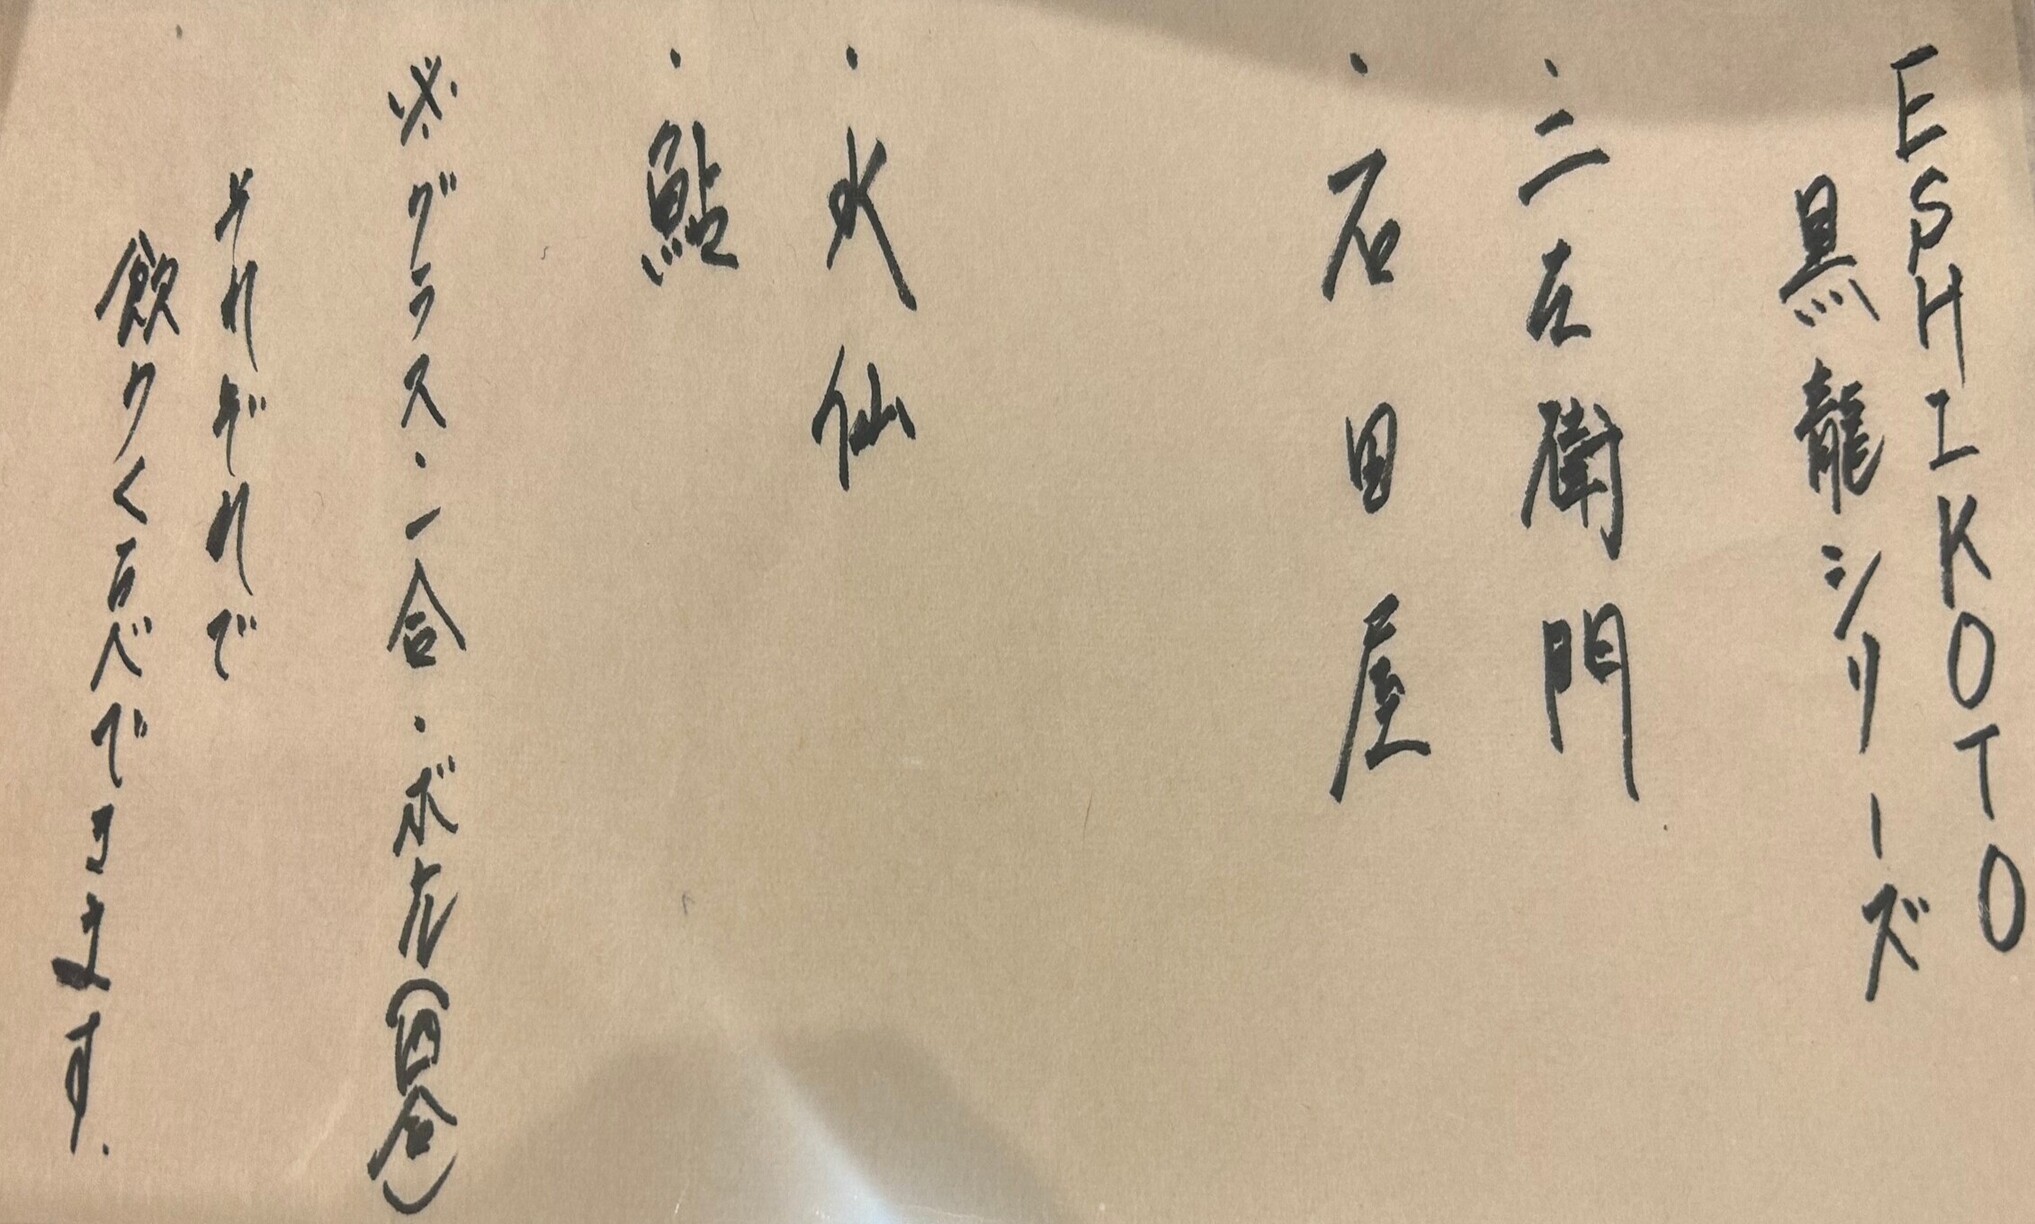 ESHIKOTO
黒龍シリーズ
・二左衛門
・石田屋
・水仙
・鮎
※グラス・一合・ボトル(四合)
それぞれで
飲りくらべできます.